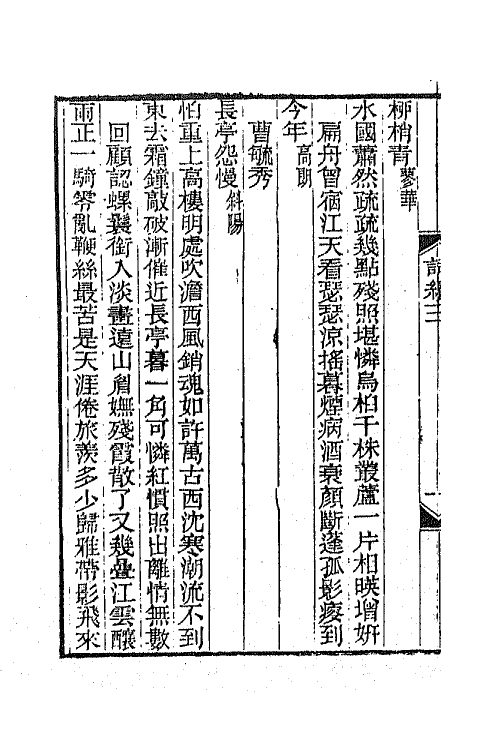 柳梢青 蓼華
水國蕭然疏疏幾點殘照堪憐烏桕千株叢蘆一片相暎增妍
扁舟曾宿江天看瑟瑟涼搖暮煙病酒衰顏斷蓬孤影瘦到
今年 高朗
曹毓秀
長亭怨慢 斜陽
怕重上高樓明處吹澹西風銷魂如許萬古西沈寒潮流不到
東去霜鐘敲破漸催近長亭暮一角可憐紅慣照出離情無數
回顧認螺鬟銜入淡畫遠山眉嫵殘霞散了又幾疊江雲釀
雨正一騎零亂鞭絲最苦是天涯倦旅羨多少歸雅帶影飛來